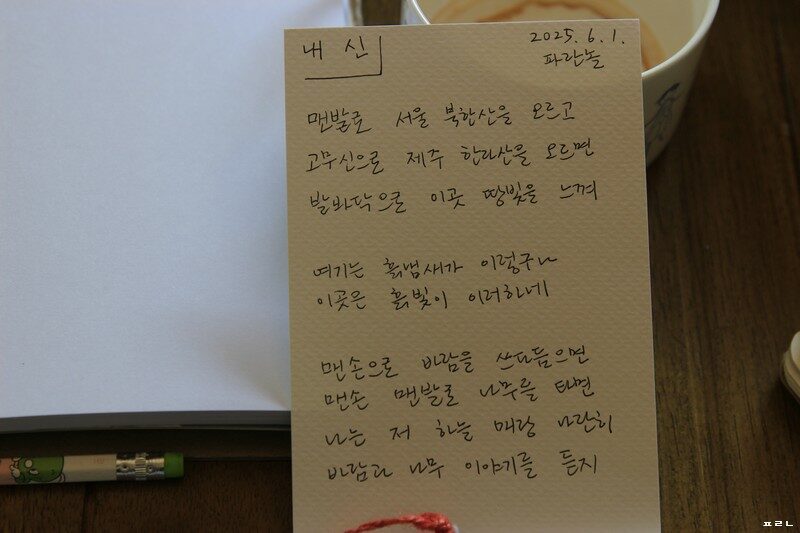 내 신
2025. 6. 1.
파란놀
맨발로 서울 북한산을 오르고
고무신으로 제주 한라산을 오르면
발바닥으로 이곳 땅빛을 느껴
여기는 흙냄새가 이렇구나
이곳은 흙빛이 이러하네
맨손으로 바람을 쓰다듬으면
맨손 맨발로 나무를 타면
나는 저 하늘 매랑 나란히
바람과 나무 이야기를 듣지
ㅍㄹㄴ